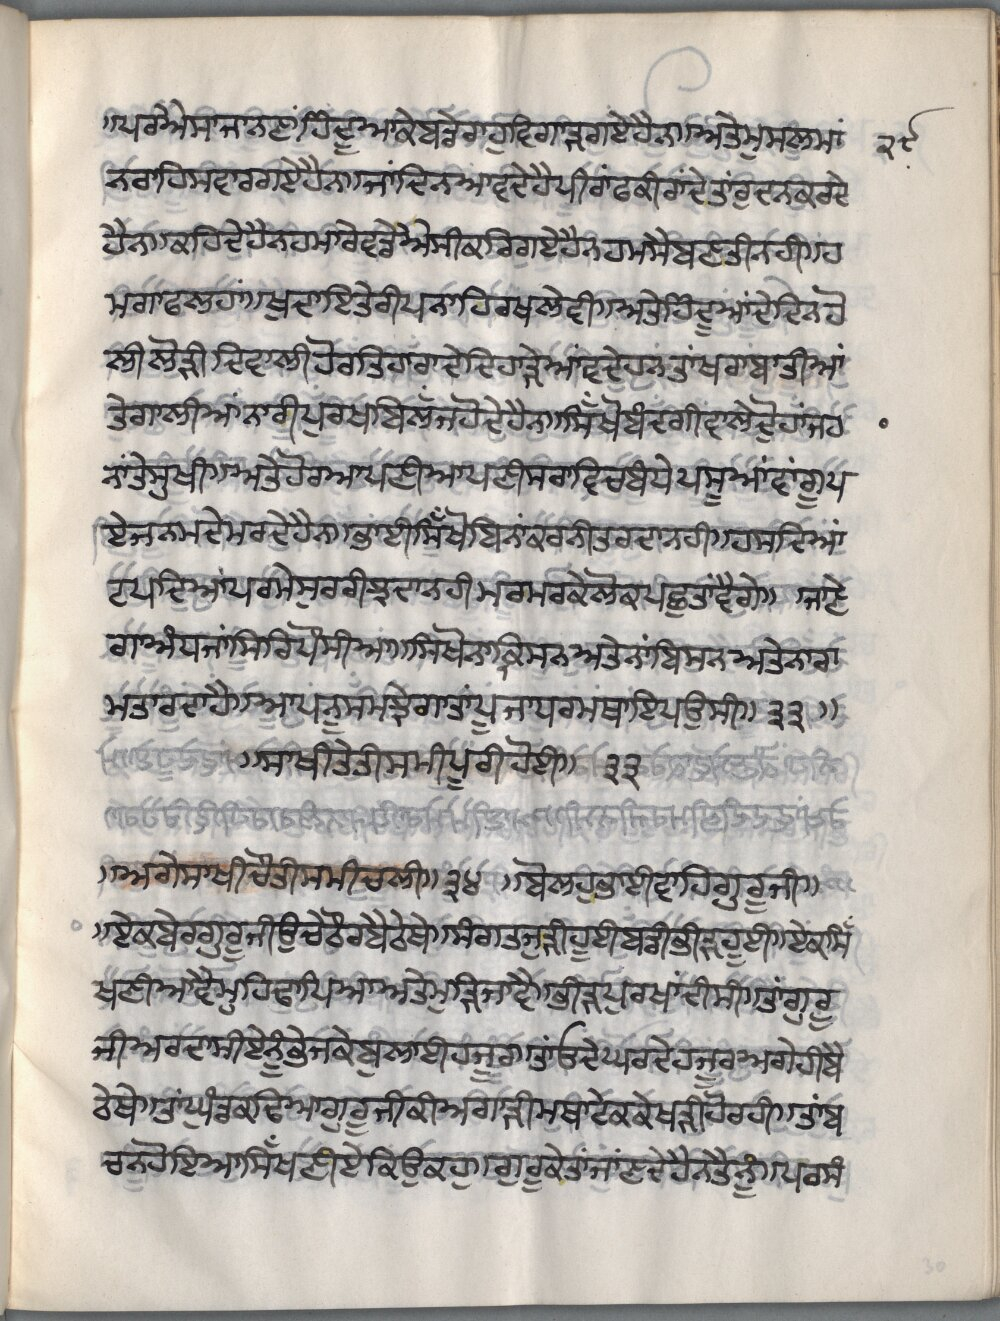 ॥ਪਰ ਐਸਾ ਜਾਨਣਾ ਹਿੰਦੂਆ ਕੇ ਬਡੇ ਰਾਹੁ ਵਿਗਾੜ ਗਏ ਹੈਨ॥ ਅਤੇ ਮੁਸਲਮਾਂ ੨੯
ਨ ਰਾਹਿ ਸਵਾਰ ਗਏ ਹੈਨ॥ ਜਾਂ ਦਿਨ ਆਵਦੇ ਹੈ ਪੀਰਾਂ ਫਕੀਰਾਂ ਦੇ ਤਾਂ ਰੁਦਨ ਕਰਦੇ
ਹੈਨ॥ ਕਹਿਦੇ ਹੈਨ ਹਮਾਰੇ ਵਡੇ ਐਸੀ ਕਰਿ ਗਏ ਹੈਨ ਹਮ ਸੈ ਬਣਤੀ ਨਹੀ॥ ਹ
ਮ ਗਾਫਲ ਹਾਂ॥ ਖੁਦਾਇ ਤੇਰੀ ਪਨਾਹਿ ਰਖ ਲੇਵੀ॥ ਅਤੇ ਹਿੰਦੂਆਂ ਦੇ ਦਿਨ ਹੋ
ਲੀ ਲੋੜੀ ਦਿਵਾਲੀ ਹੋਰ ਤਿਹਾਰਾ ਦੇ ਦਿਹਾੜੇ ਆਂਵਦੇ ਹਨ ਤਾਂ ਖਰਾਬਾਤੀਆਂ
ਤੇ ਗਾਲੀਆਂ ਨਾਰੀ ਪੁਰਖ ਬਿਲੱਜ ਹੋਦੇ ਹੈਨ॥ ਸਿੱਖੋ ਬੰਦਗੀ ਵਾਲੇ ਦੋਹਾਂ ਜਹ
ਨਾਂ ਤੇ ਸੁਖੀ॥ ਅਤੇ ਹੋਰ ਆਪਣੀ ਆਪਣੀ ਸਰਾ ਵਿਚ ਬੰਧੇ ਪਸੂਆਂ ਵਾਂਗੂ ਪ
ਏ ਜਨਮਦੇ ਮਰਦੇ ਹੈਨ॥ ਭਾਈ ਸਿੱਖੋ ਬਿਨਾਂ ਕਰਨੀ ਤਰਦਾ ਨਹੀ॥ ਹਸਦਿਆਂ
ਟਪਦਿਆਂ ਪਰਮੇਸੁਰ ਰੀਝਦਾ ਨਹੀ ਮਰ ਮਰ ਕੇ ਲੋਕ ਪਛੁਤਾਂਵੈਗੇ॥ ਜਾਣੇ
ਗਾ ਅੰਧ ਜਾਂ ਸਿਰਿ ਪੌਸੀਆ॥ ਸਿਖੋ ਨਾ ਕ੍ਰਿਸਨ ਅਤੇ ਨਾਂ ਬਿਸਨ ਅਤੇ ਨਾ ਰਾ
ਮ ਤਾਰਦਾ ਹੈ॥ ਆਪਨੂ ਸਮਝੇਗਾ ਤਾਂ ਪੂਜਾ ਪਰਮ ਥਾਇ ਪਉਸੀ॥ ੩੩ ॥
॥ਸਾਖੀ ਤੇਤੀਸਮੀ ਪੂਰੀ ਹੋਈ॥ ੩੩
॥ਅਗੇ ਸਾਖੀ ਚੌਤੀਸਮੀ ਚਲੀ॥ ੩੪ ॥ਬੋਲਹੁ ਭਾਈ ਵਾਹਿਗੁਰੂ ਜੀ॥
॥ਏਕ ਬੇਰ ਗੁਰੂ ਜੀ ਉਚੇ ਠੌਰ ਬੈਠੇ ਥੇ॥ ਸੰਗਤ ਜੁੜੀ ਹੁਈ ਬਡੀ ਭੀੜ ਹੂਈ॥ ਏਕ ਸਿੱ
ਖਣੀ ਆਵੈ ਮੁਹਿ ਢਾਪਿਆ ਅਤੇ ਮੁੜਿ ਜਾਵੈ॥ ਭੀੜ ਪੁਰਖਾਂ ਦੀ ਸੀ॥ ਤਾਂ ਗੁਰੂ
ਜੀ ਅਰਦਾਸੀਏ ਨੂੰ ਭੇਜ ਕੇ ਬੁਲਾਈ ਹਜੂਰ॥ ਤਾਂ ਓਦੇ ਪਰਦੇ ਹਜੂਰ ਅਗੇ ਹੀ ਬੈ
ਠੇ ਥੇ॥ ਤਾਂ ਘੁੰਡ ਕਢਿਆ ਗੁਰੂ ਜੀ ਕੀ ਅਗਾੜੀ ਮਥਾ ਟੇਕ ਕੇ ਖੜੀ ਹੋ ਰਹੀ॥ ਤਾਂ ਬ
ਚਨ ਹੋਇਆ ਸਿੱਖਣੀਏ ਕਿਉਕਹਾ॥ ਗੁਰੂ ਕੇ ਤਾਂ ਜਾਂਣਦੇ ਹੈਨ ਤੈਨੂੰ॥ ਪਰ ਸੰ